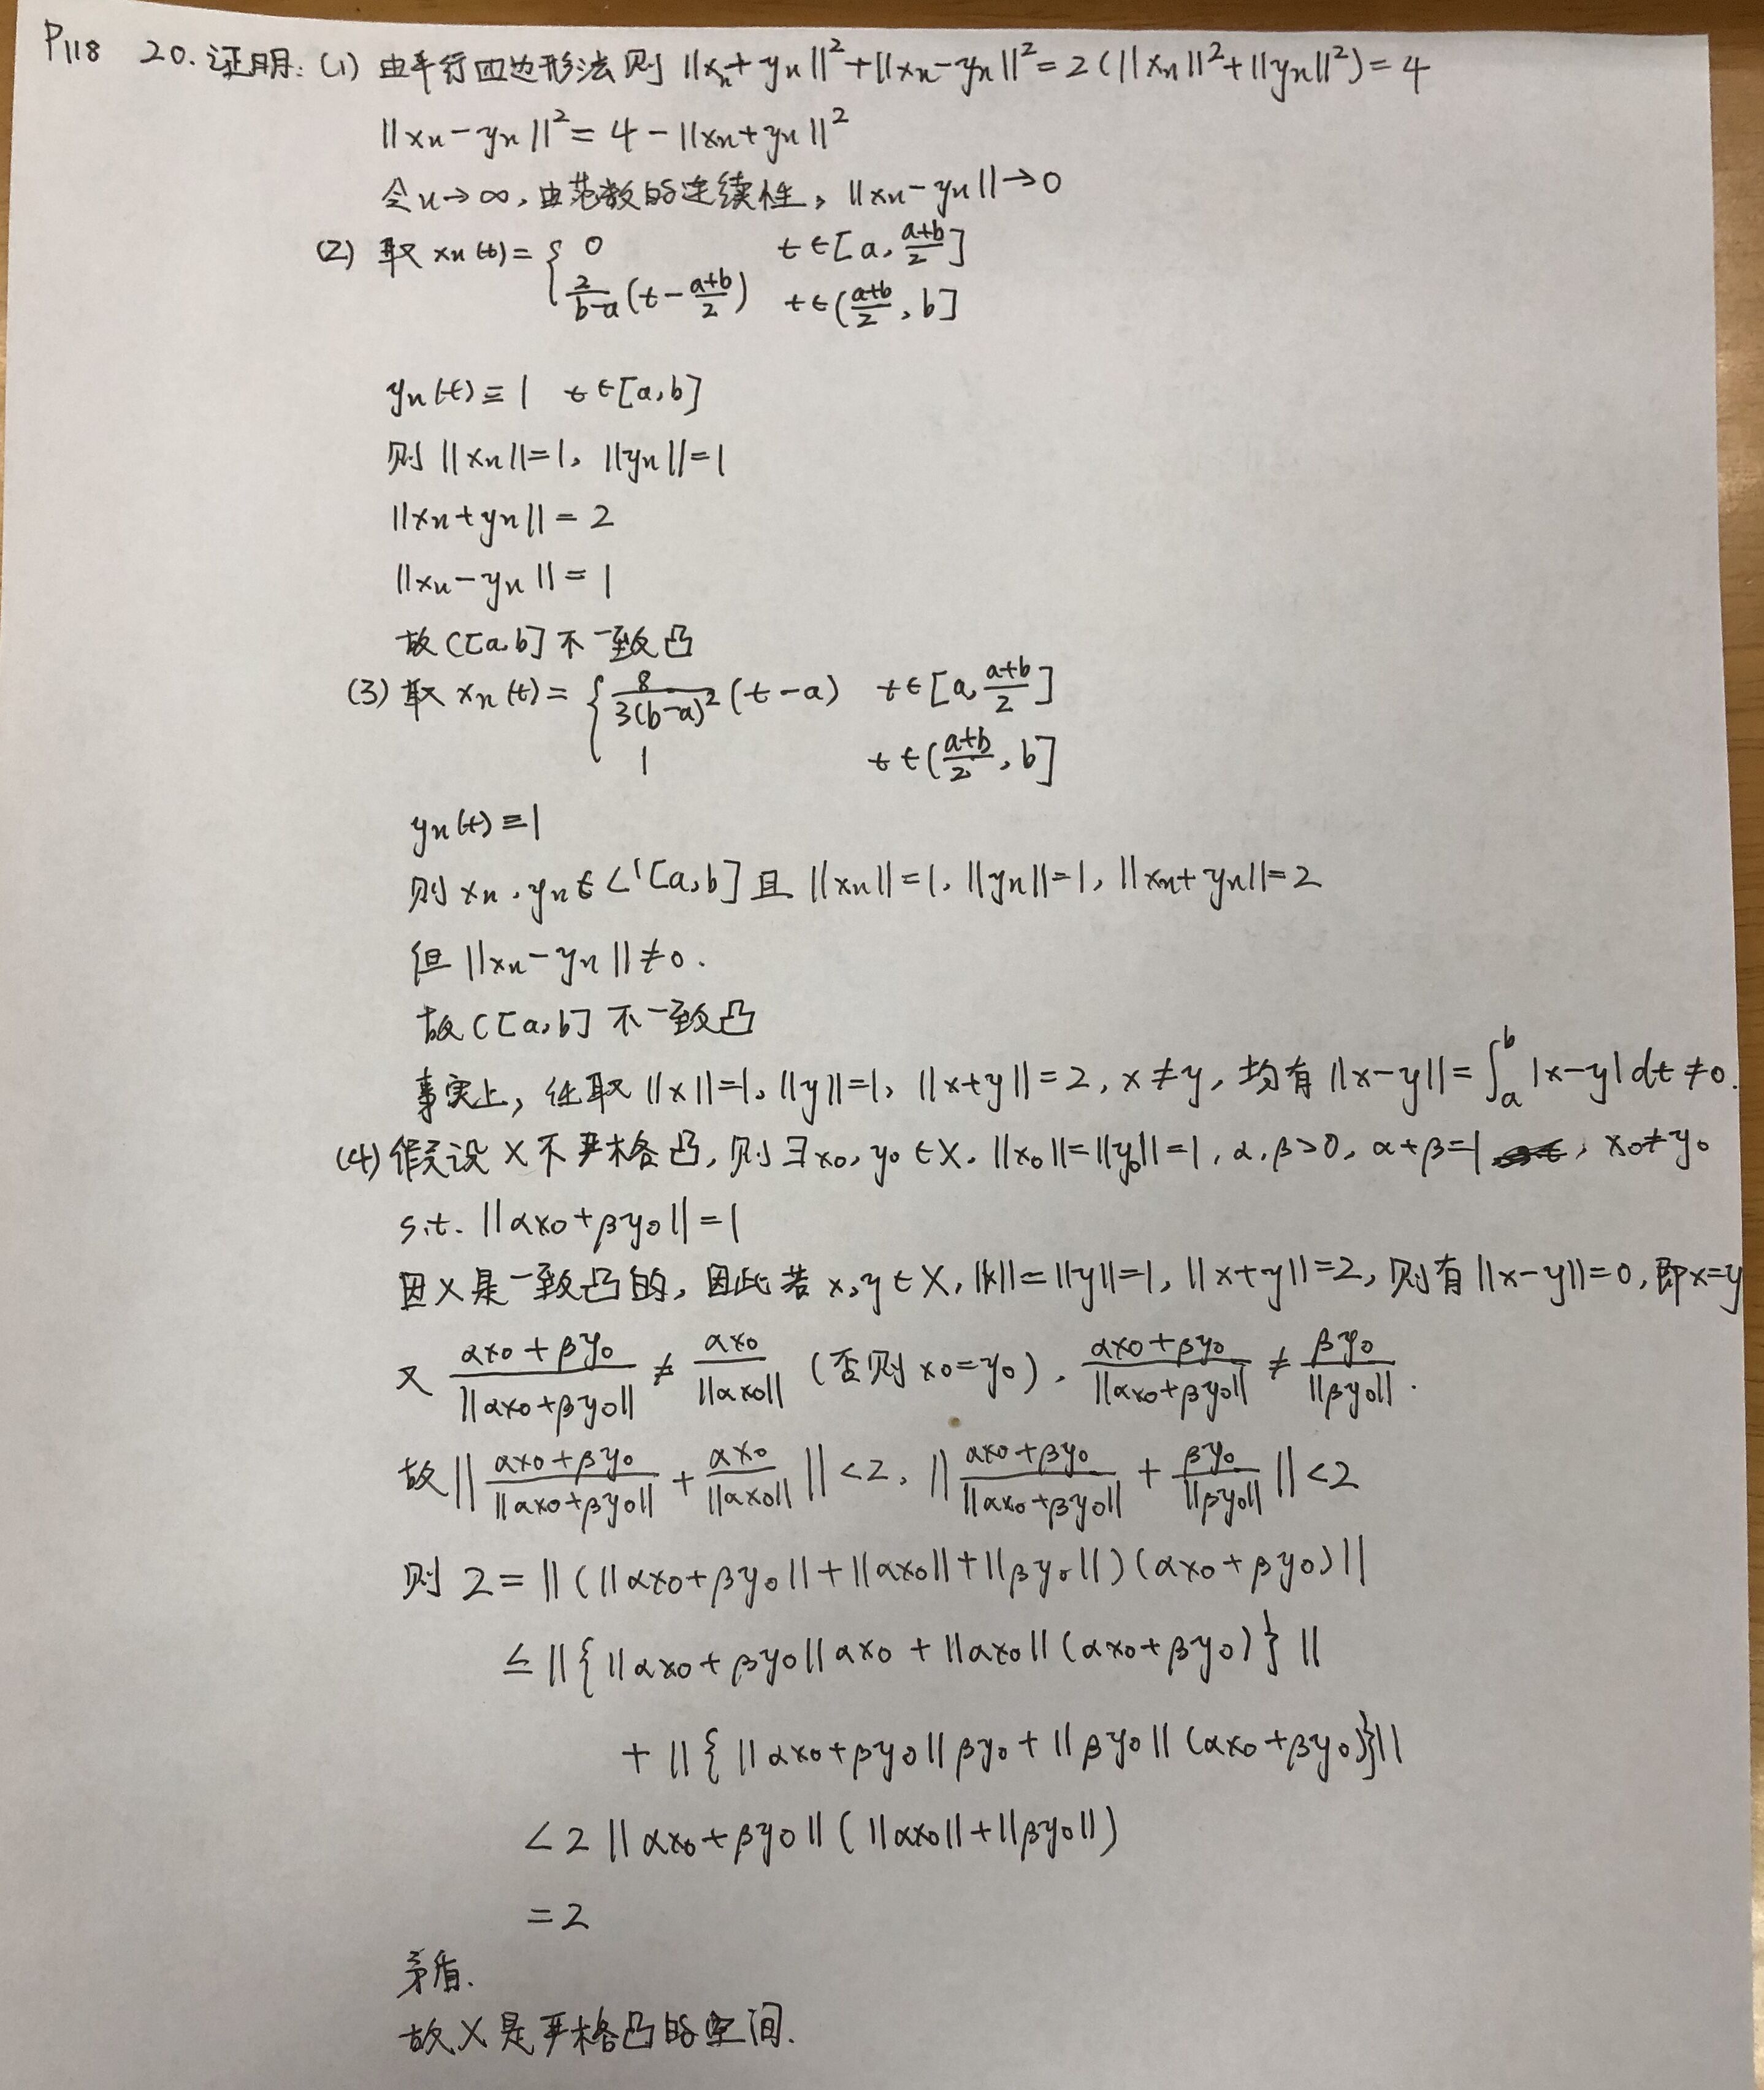 P118 20. 证明: (1) 由平行四边形法则 ||xn+yn||²+||xn-yn||²=2(||xn||²+||yn||²)=4
||xn-yn||²=4-||xn+yn||²
令n→∞, 由范数的连续性, ||xn-yn||→0
(2) 取 xn(t)= { 0 t∈[a, (a+b)/2]
2/(b-a) (t-(a+b)/2) t∈((a+b)/2, b]
yn(t)≡1 t∈[a,b]
则 ||xn||=1, ||yn||=1
||xn+yn||=2
||xn-yn||=1
故C[a,b]不一致凸
(3) 取 xn(t)= { 8/(3(b-a)²) (t-a) t∈[a, (a+b)/2]
1 t∈((a+b)/2, b]
yn(t)≡1
则 xn, yn∈L¹[a,b] 且 ||xn||=1, ||yn||=1, ||xn+yn||=2
但 ||xn-yn||≠0.
故C[a,b]不一致凸
事实上, 任取 ||x||=1, ||y||=1, ||x+y||=2, x≠y, 均有 ||x-y||=∫ₐᵇ|x-y|dt≠0.
(4) 假设X不严格凸, 则∃x0, y0∈X. ||x0||=||y0||=1, α,β>0, α+β=1, x0≠y0
s.t. ||αx0+βy0||=1
因X是一致凸的, 因此若 x,y∈X, ||x||=||y||=1, ||x+y||=2, 则有||x-y||=0, 即x=y
又 (αx0+βy0)/||αx0+βy0|| ≠ αx0/||αx0|| (否则x0=y0), (αx0+βy0)/||αx0+βy0|| ≠ βy0/||βy0||.
故 ||(αx0+βy0)/||αx0+βy0|| + αx0/||αx0|| ||<2, ||(αx0+βy0)/||αx0+βy0|| + βy0/||βy0|| ||<2
则 2=||(||αx0+βy0||+||αx0||+||βy0||)(αx0+βy0)||
≤||{||αx0+βy0||αx0+||αx0||(αx0+βy0)}||
+||{||αx0+βy0||βy0+||βy0||(αx0+βy0)}||
<2||αx0+βy0||(||αx0||+||βy0||)
=2
矛盾.
故X是严格凸的空间.